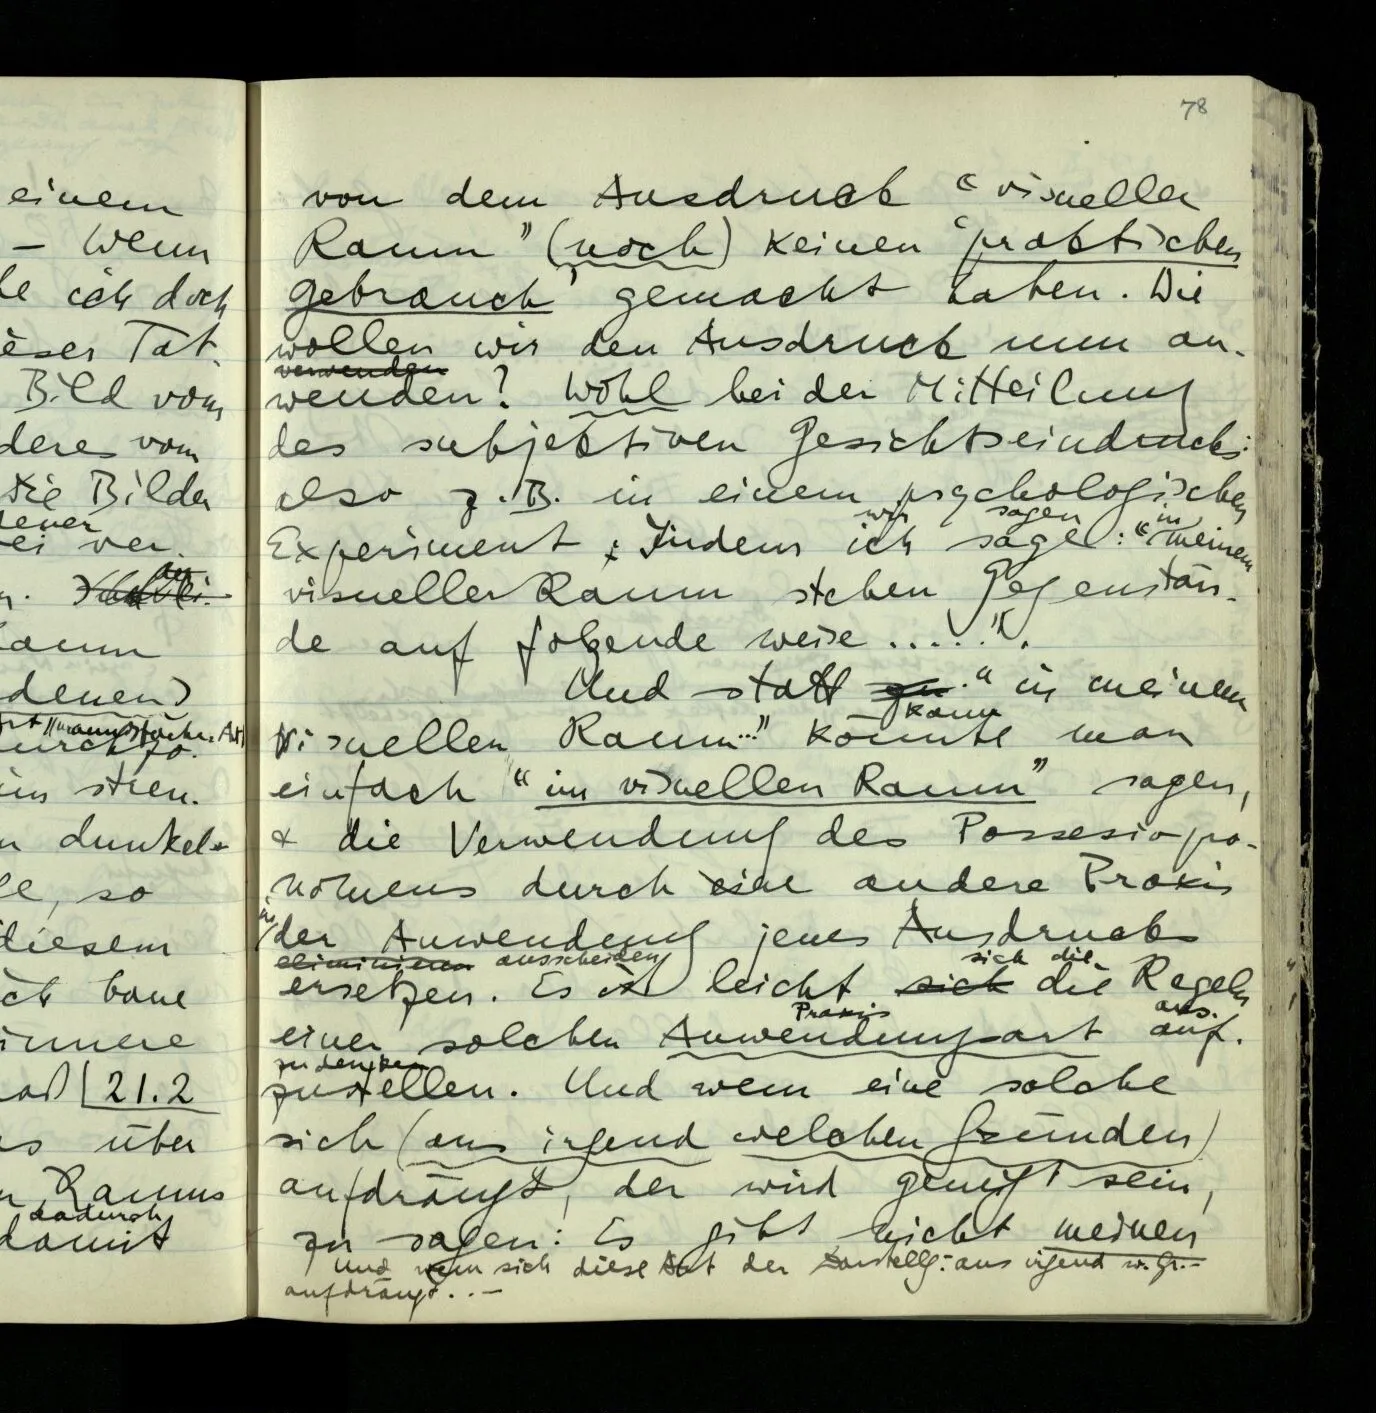 einem
– Wenn
ich doch
Tat-
Bild vom
dere vom
die Bilder
ver-
denen)
dunkel-
so
diesem
innere
21.2
über
Raumes
dadurch
damit
78
von dem Ausdruck “visueller
Raum” (noch) keinen ‘praktischen
Gebrauch’ gemacht haben. Wie
wollen wir den Ausdruck nun an-
verwenden
wenden? Wohl bei der Mitteilung
des subjektiven Gesichtseindrucks:
also z.B. in einem psychologischen
wir sagen in
Experiment; Indem ich sage: “meinem
visueller Raum stehen Gegenstän-
de auf folgende weise .....”.
Und statt “in meinem
kann
visuellen Raum...” könnte man
einfach “im visuellen Raum” sagen,
& die Verwendung des Possesivpro-
nomens durch eine andere Praxis
in
der Anwendung jenes Ausdrucks
eliminieren ausscheiden sich die
ersetzen. Es ist leicht sich die Regeln
Praxis aus-
einer solchen Anwendungsart auf-
zudenken
zustellen. Und wem eine solche
sich (aus irgend welchen Gründen)
aufdrängt, der wird geneigt sein,
zu sagen: Es gibt nicht meinen
Und wem sich diese Art der Darstellg. aus irgend w. Gr. –
aufdrängt... –